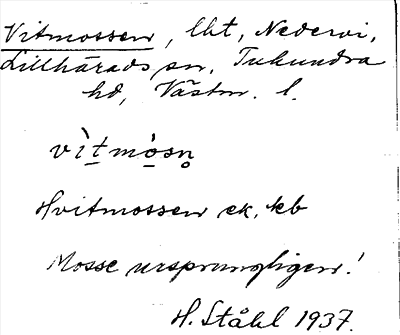 Vitmossen, lht, Nedervi,
Lillhärads sn, Tuhundra
hd, Västm. l.
vìt̲mò̲sn̥
Hvitmossen ek. kb
Mosse ursprungligen!
H. Ståhl 1937.